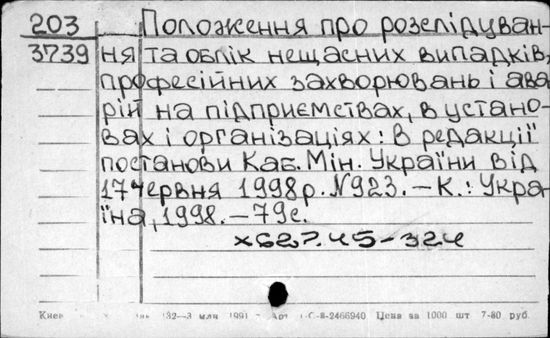 203 Положення про розслідуван-
3739 ня та облік нещасних випадків,
професійних захворювань і ава
рій на підприємствах, в устано-
вах і організаціях: В редакції
постанови Каб. Мін. України від
17 червня 1998 р. N923. – К.: Укра
їна, 1998. – 79 с.
х627.45-324
Киев 132—3 млн 1991 С-8-2466940 Цена за 1000 шт 7-80 руб.